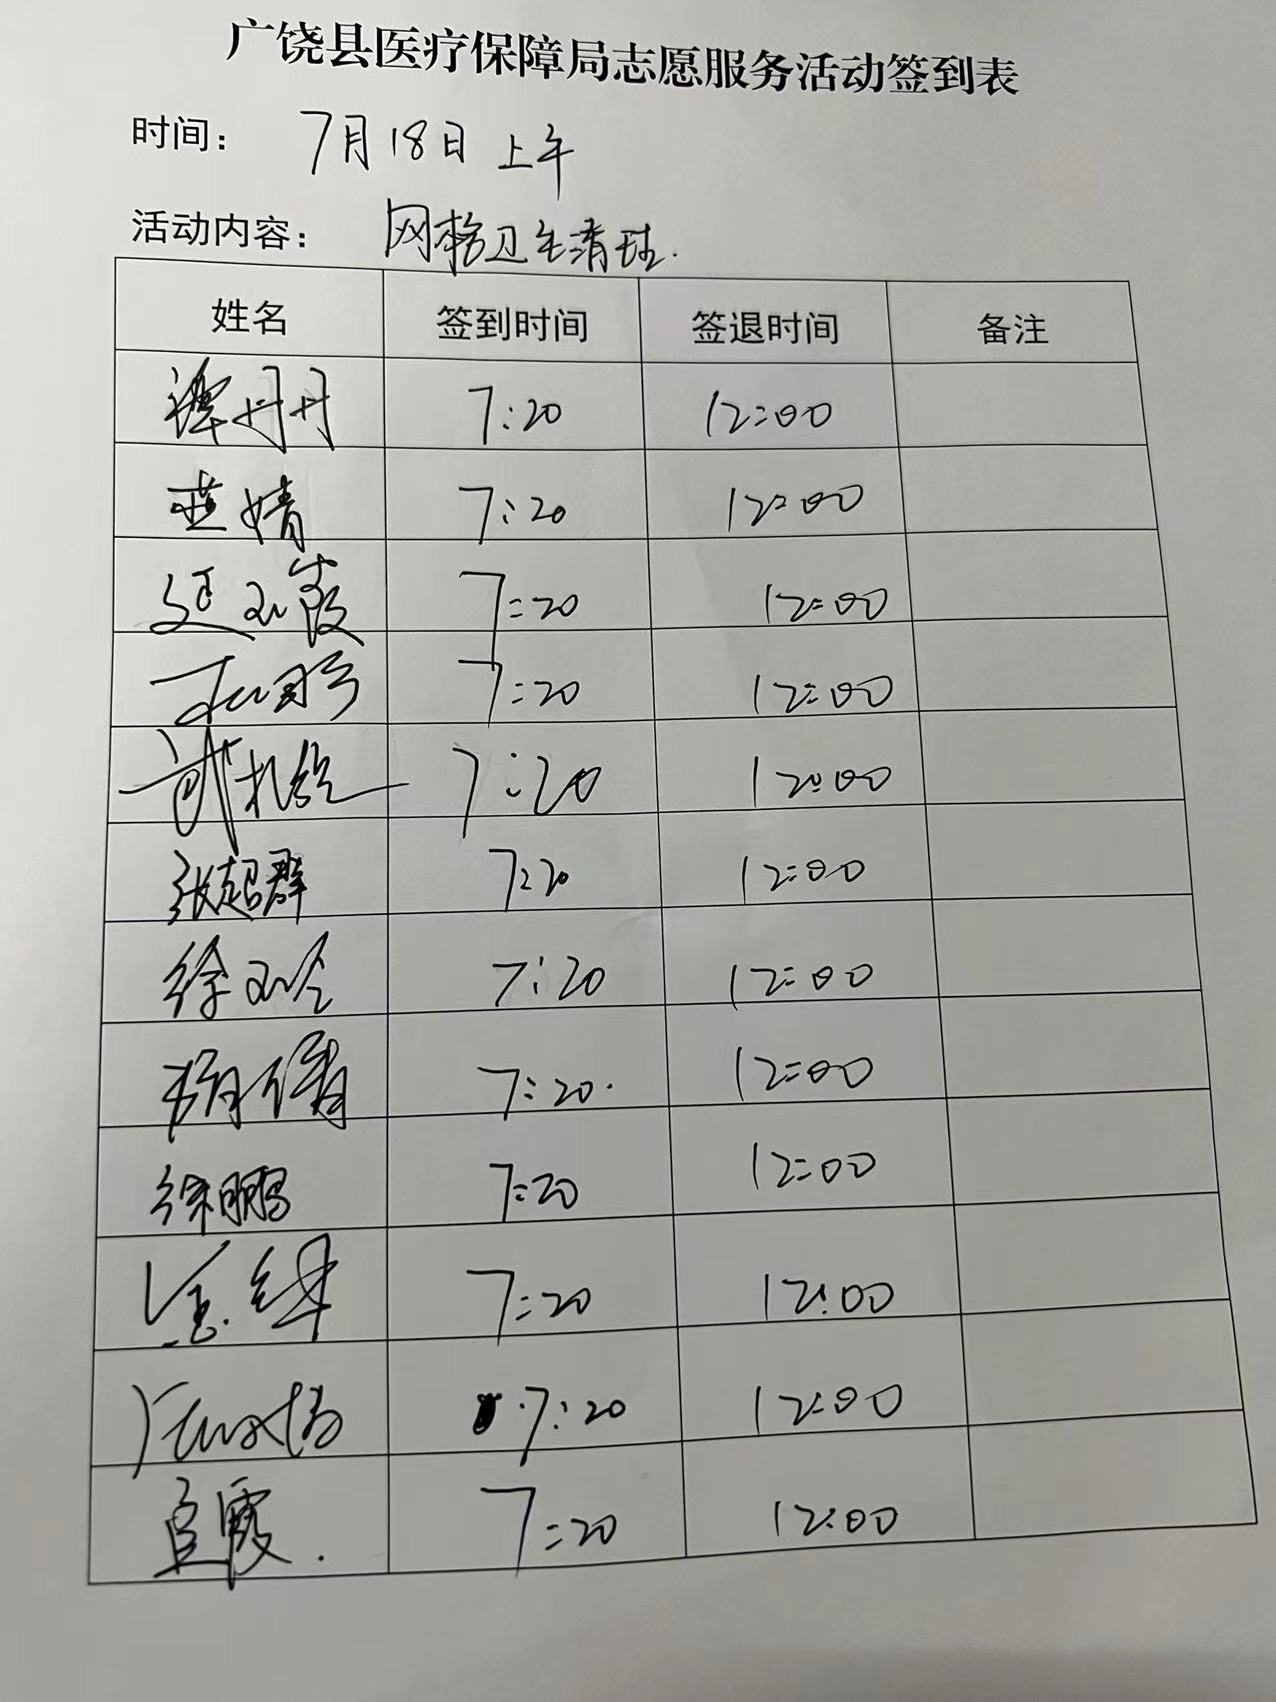 广饶县医疗保障局志愿服务活动签到表
时间： 7月18日 上午
活动内容： 网格卫生清理.
姓名 签到时间 签退时间 备注
谭丹丹 7:20 12:00
燕婧 7:20 12:00
延小霞 7:20 12:00
7:20 12:00
7:20 12:00
张超群 7:20 12:00
徐小会 7:20 12:00
7:20. 12:00
徐鹏 7:20 12:00
7:20 12:00
7:20 12:00
霞. 7:20 12:00